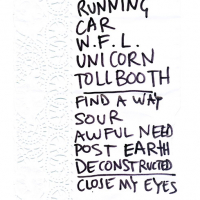 RUNNING
CAR
W.F.L.
UNICORN
TOLLBOOTH
FIND A WAY
SOUR
AWFUL NEED
POST EARTH
DECONSTRUCTED
CLOSE MY EYES